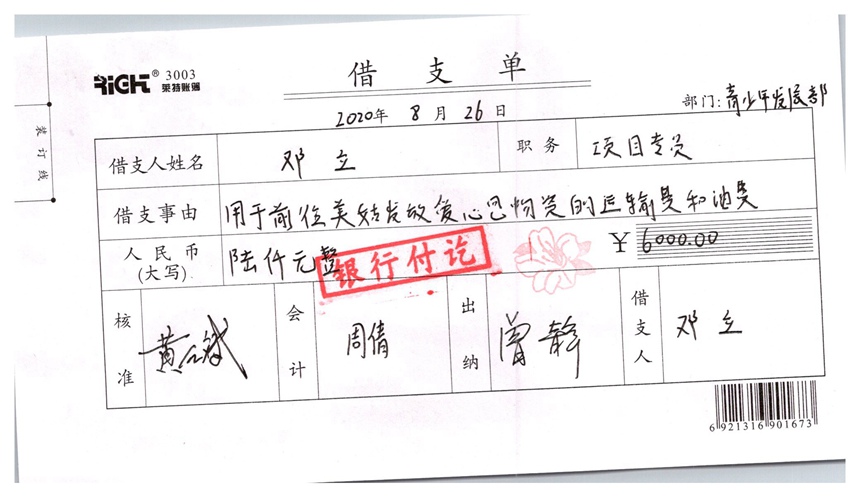 RiGHT® 3003
莱特账簿
借支单
2020年 8月 26日
部门:青少年发展部
装订线
借支人姓名 邓立 职务 项目专员
借支事由 用于前往美姑发放爱心包物资的运输费和油费
人民币(大写) 陆仟元整 ¥ 6000.00
银行付讫
核准 会计 周倩 出纳 曾静 借支人 邓立
6 921316 901673